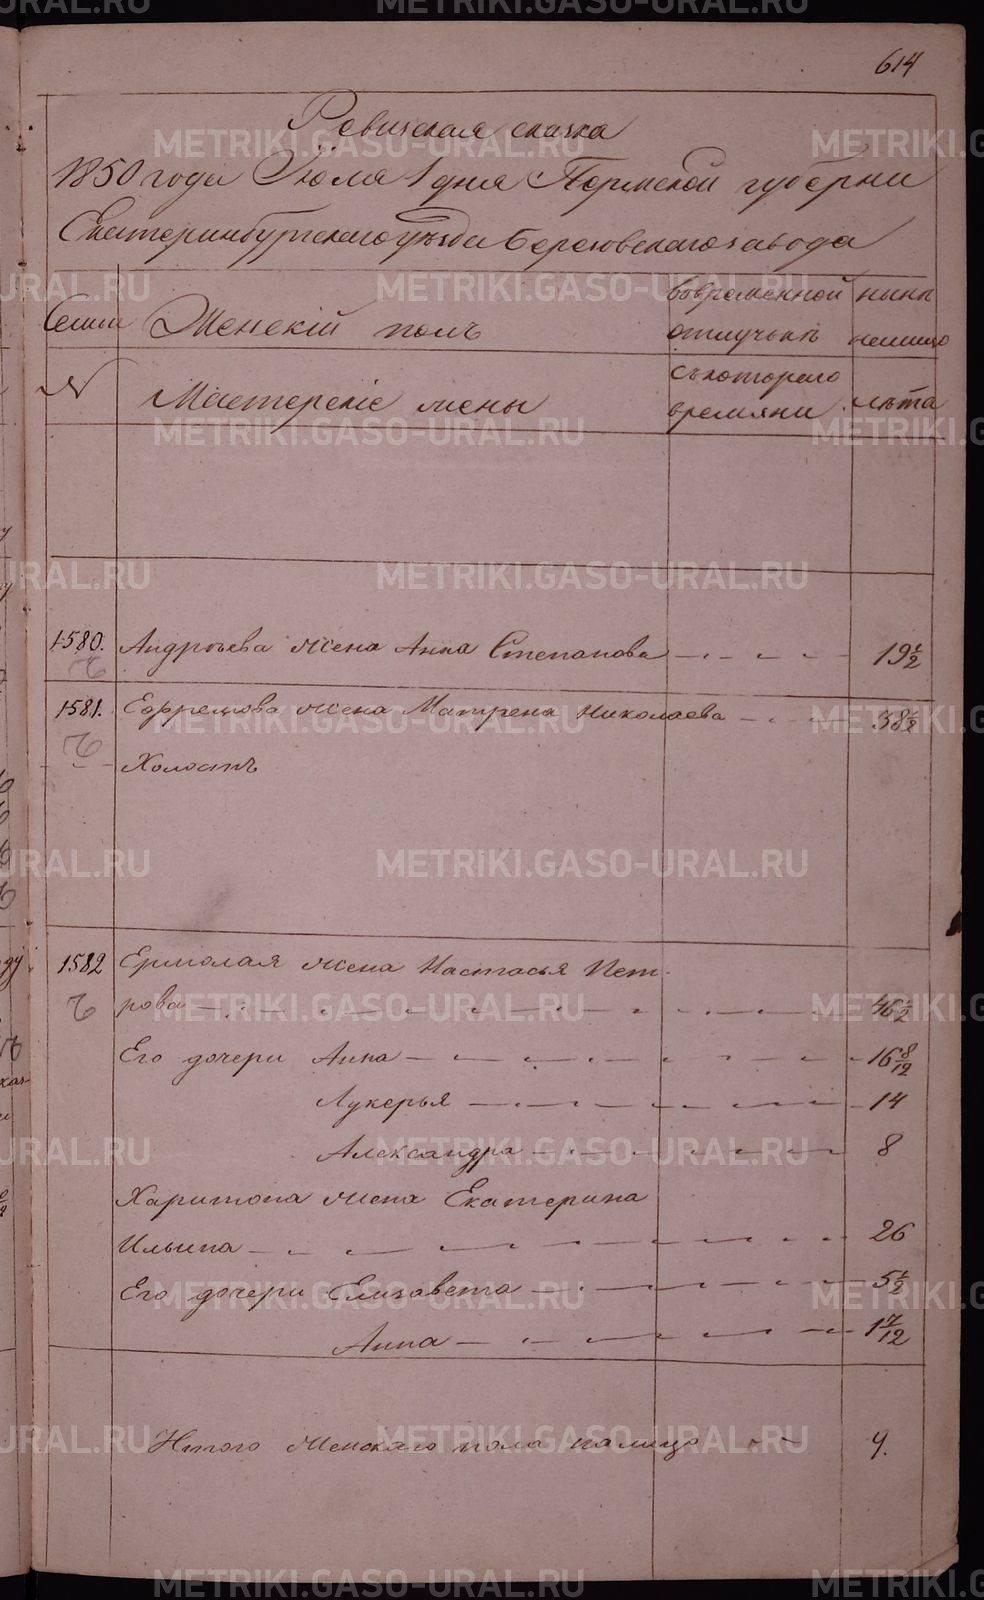 614
Ревизская сказка
1850 года Июля 1 дня Пермской губернии
Екатеринбургскаго уезда Березовскаго завода
Семьи Женскій полъ вовременной ныне
отлучьке нешние
№ Мастерскіе жены съкотораго лета
времяни
1580. Андреева жена Анна Степанова 19 1/2
1581. Ефремова жена Матрена Николаева 38 1/2
Холостъ
1582 Ермолая жена Настасья Пет-
рова 46 1/2
Его дочери Анна 16 8/12
Лукерья 14
Александра 8
Харитона жена Екатерина
Ильина 26
Его дочери Елизавета 5 1/2
Анна 1 7/12
Итого женскаго пола налицо 9.
METRIKI.GASO-URAL.RU